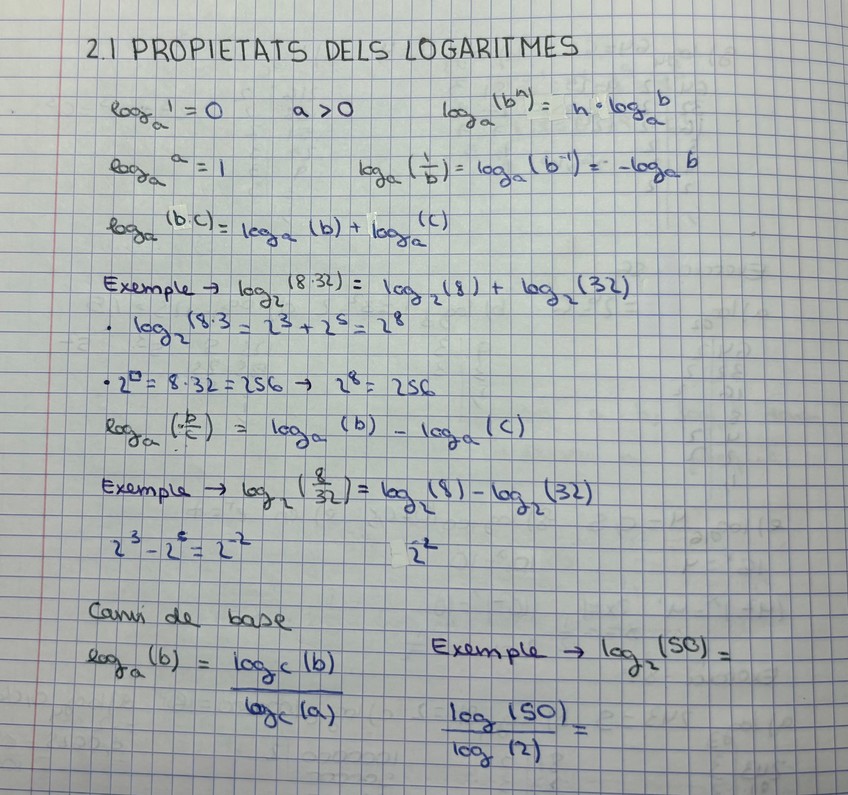 2.1 PROPIETATS DELS LOGARITMES
logₐ 1 = 0 a > 0 logₐ (bⁿ) = n · logₐ b
logₐ a = 1 logₐ (1/b) = logₐ (b⁻¹) = -logₐ b
logₐ (b·c) = logₐ (b) + logₐ (c)
Exemple → log₂ (8·32) = log₂ (8) + log₂ (32)
· log₂ (8·3 = 2³ + 2⁵ = 2⁸
· 2^□ = 8·32 = 256 → 2⁸ = 256
logₐ (b/c) = logₐ (b) - logₐ (c)
Exemple → log₂ (8/32) = log₂ (8) - log₂ (32)
2³ - 2⁵ = 2⁻² 2⁻²
Canvi de base
Exemple → log₂ (50) =
logₐ (b) = log_c (b) / log_c (a)
log (50) / log (2) =